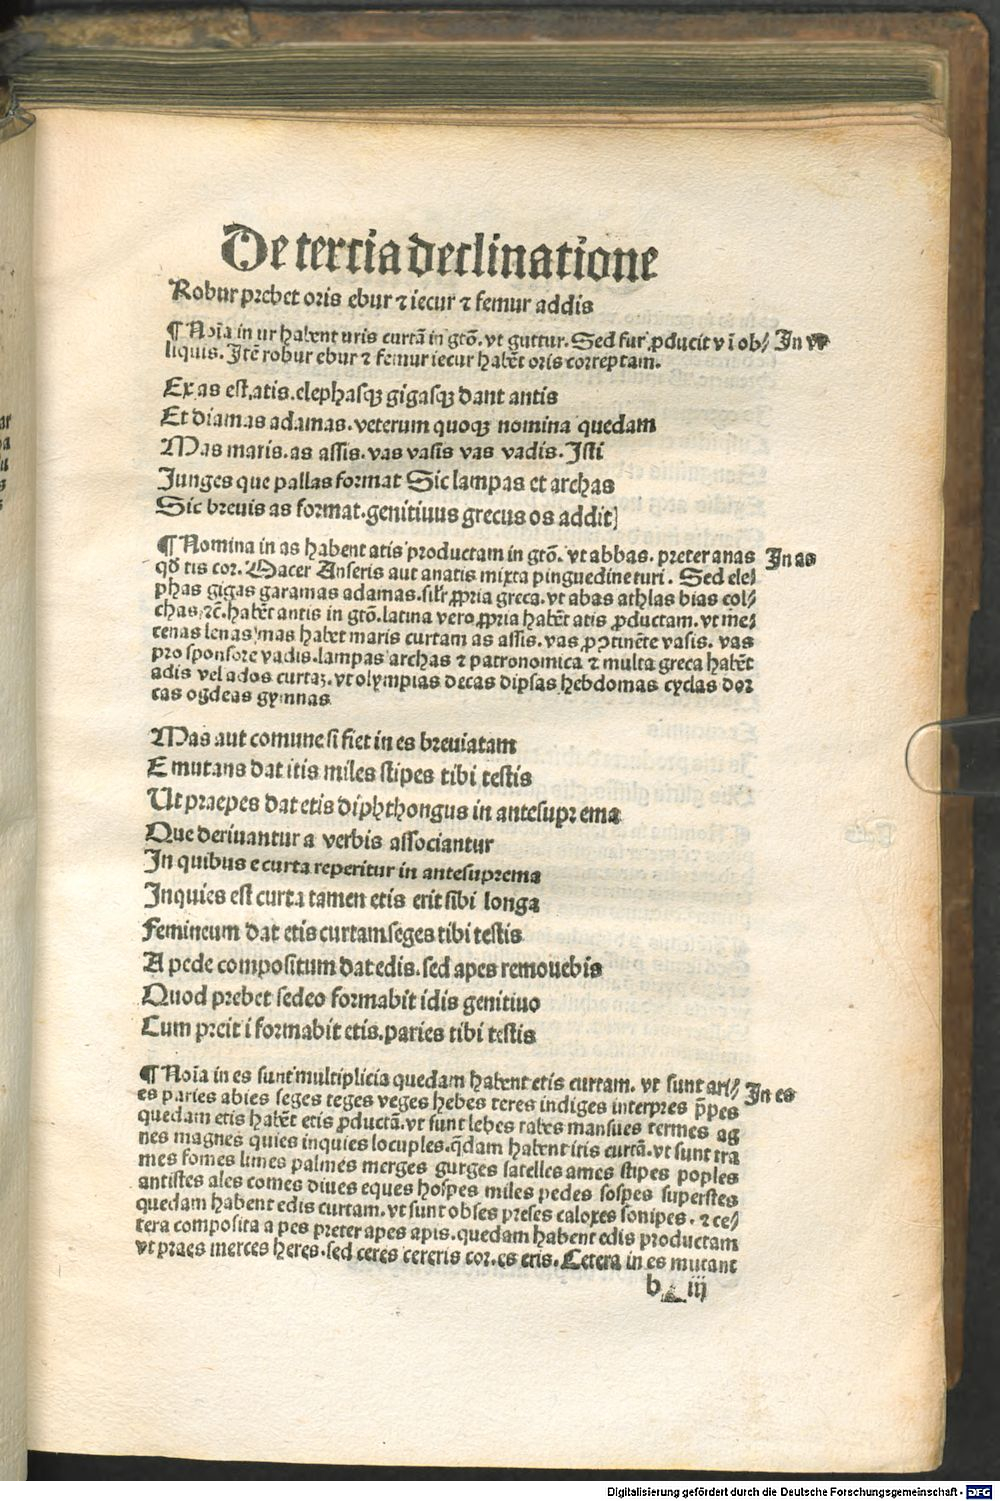 De tercia declinatione
Robur prebet oris ebur ⁊ iecur ⁊ femur addis
¶ Noīa in ur habent uris curtā in gtō. vt guttur. Sed fur ꝓducit v ī ob⸗
In vr
liquis. Itē robur ebur ⁊ femur iecur habēt oris correptam.
Ex as est.atis.elephasqꝫ gigasqꝫ dant antis
Et diamas adamas. veterum quoqꝫ nomina quedam
Mas maris. as assis. vas vasis vas vadis. Isti
Junges que pallas format Sic lampas et archas
Sic breuis as format.genitiuus grecus os addit
¶ Nomina in as habent atis productam in gtō. vt abbas. preter anas
In as
qd̄ tis cor. Macer Anseris aut anatis mixta pinguedine turi. Sed ele⸗
phas gigas garamas adamas. silr ꝓpria greca. vt abas athlas bias col⸗
chas ⁊c̄. habēt antis in gtō. latina vero ꝓpria habēt atis ꝓductam. vt me⸗
cenas lenas mas habet maris curtam as assis. vas ꝓ ꝯtinēte vasis. vas
pro sponsore vadis. lampas archas ⁊ patronomica ⁊ multa greca habēt
adis vel ados curtaꝫ. vt olympias decas dipsas hebdomas cyclas dor
cas ogdeas gymnas
Mas aut comune si fiet in es breuiatam
E mutans dat itis miles stipes tibi testis
Ut praepes dat etis diphthongus in antesuprema
Que deriuantur a verbis associantur
In quibus e curta reperitur in antesuprema
Inquies est curta tamen etis erit sibi longa
Femineum dat etis curtam seges tibi testis
A pede compositum dat edis. sed apes remouebis
Quod prebet sedeo formabit idis genitiuo
Cum preit i formabit etis. paries tibi testis
¶ Noīa in es sunt multiplicia quedam habent etis curtam. vt sunt ari⸗
In es
es paries abies seges teges veges hebes teres indiges interpres p̄pes
quedam etis habēt etis ꝓductā. vt sunt lebes tabes mansues termes ag
nes magnes quies inquies locuples. q̄dam habent itis curtā. vt sunt tra
mes fomes limes palmes merges gurges satelles ames stipes poples
antistes ales comes diues eques hospes miles pedes sospes superstes
quedam habent edis curtam. vt sunt obses preses caloxes sonipes. ⁊ ce⸗
tera composita a pes preter apes apis. quedam habent edis productam
vt praes merces heres. sed ceres cereris cor. es eris. Cetera in es mutant
b iij
Digitalisierung gefördert durch die Deutsche Forschungsgemeinschaft - DFG